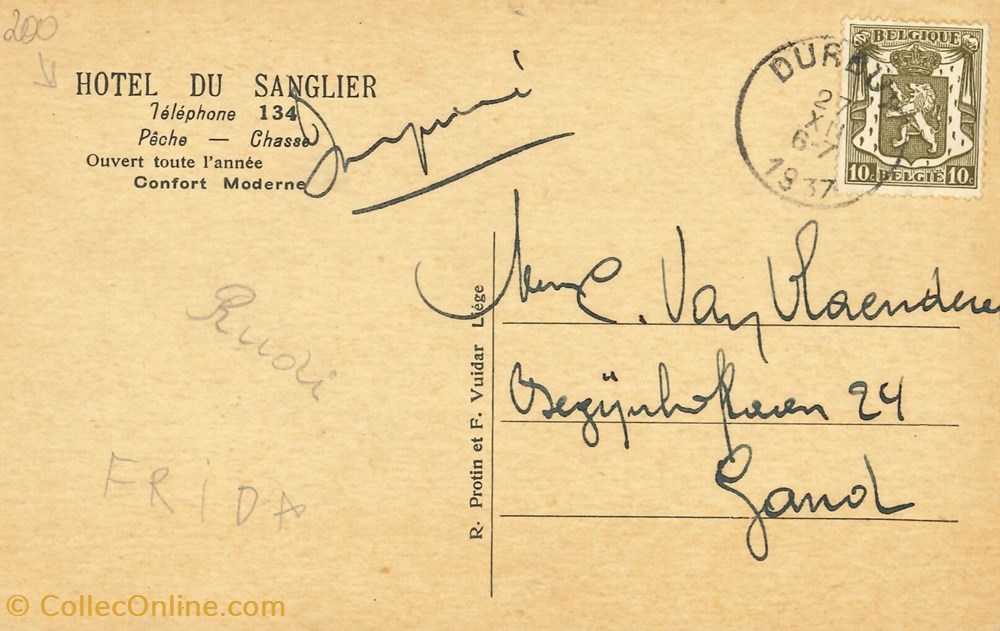 200
HOTEL DU SANGLIER
Téléphone 134
Pêche — Chasse
Ouvert toute l'année
Confort Moderne
Imprimé
BELGIQUE
10c BELGIË 10c
DURBUY
27
XII
6-7
1937
R. Protin et F. Vuidar Liége
Van Vlaenderen
Begijnhoflaan 24
Gand
Rudi
FRIDA
© CollecOnline.com